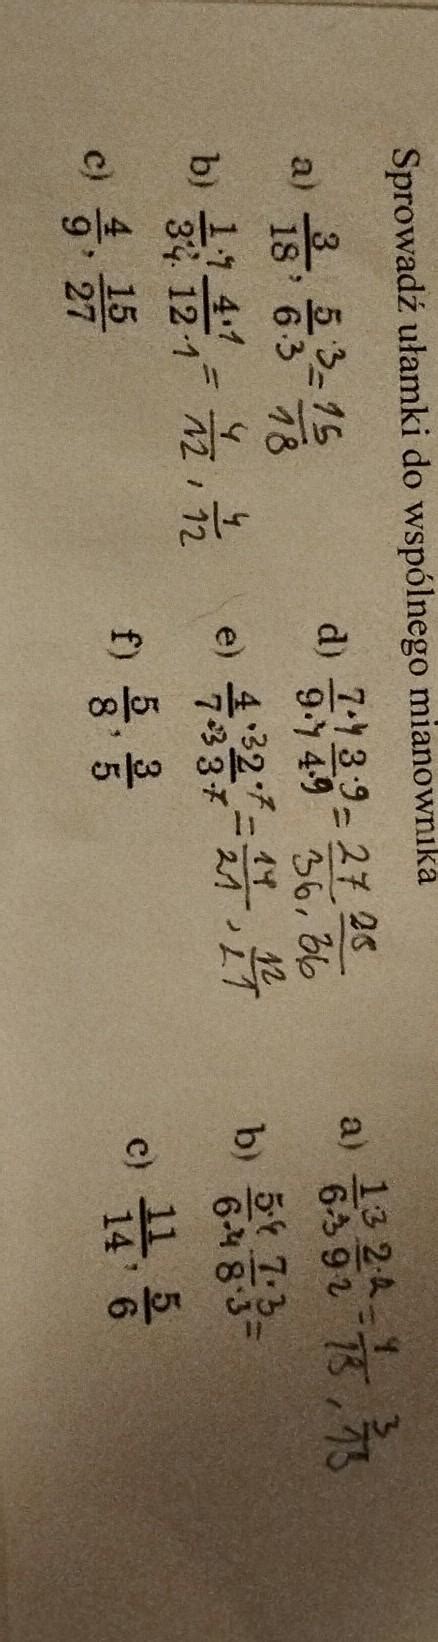 Sprowadź ułamki do wspólnego mianownika
a) 3/18, 5·3/6·3 = 15/18
b) 1·4/3·4, 4·1/12·1 = 4/12, 4/12
c) 4/9, 15/27
d) 7·4/9·4 3·9/4·9 = 27/36, 28/36
e) 4·3/7·3 2·7/3·7 = 14/21, 12/21
f) 5/8, 3/5
a) 1·3/6·3 2·2/9·2 = 4/18, 3/18
b) 5·4/6·4 7·3/8·3 =
c) 11/14, 5/6